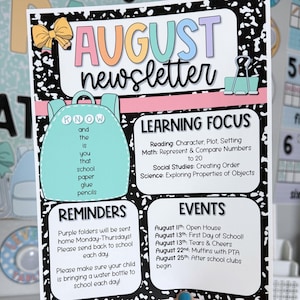 AUGUST
newsletter
KNOW
and
the
is
you
that
school
paper
glue
pencils
LEARNING FOCUS
Reading: Character, Plot, Setting
Math: Represent & Compare Numbers
to 20
Social Studies: Creating Order
Science: Exploring Properties of Objects
REMINDERS
Purple folders will be sent
home Monday-Thursdays!
Please send back to school
each day.
Please make sure your child
is bringing a water bottle to
school each day!
EVENTS
August 11th: Open House
August 13th: First Day of School!
August 13th: Tears & Cheers
August 22nd: Muffins with PTA
August 25th: After school clubs
begin